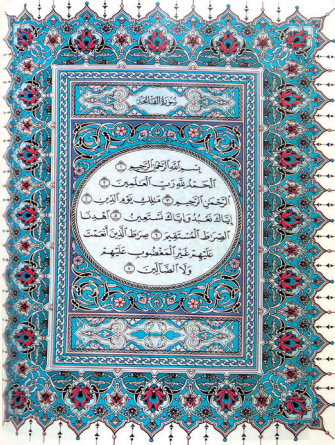 سُورَةُ الفَاتِحَةِ
بِسْمِ اللَّهِ الرَّحْمَٰنِ الرَّحِيمِ ١
الْحَمْدُ لِلَّهِ رَبِّ الْعَالَمِينَ ٢
الرَّحْمَٰنِ الرَّحِيمِ ٣ مَالِكِ يَوْمِ الدِّينِ ٤
إِيَّاكَ نَعْبُدُ وَإِيَّاكَ نَسْتَعِينُ ٥ اهْدِنَا
الصِّرَاطَ الْمُسْتَقِيمَ ٦ صِرَاطَ الَّذِينَ أَنْعَمْتَ
عَلَيْهِمْ غَيْرِ الْمَغْضُوبِ عَلَيْهِمْ
وَلَا الضَّالِّينَ ٧